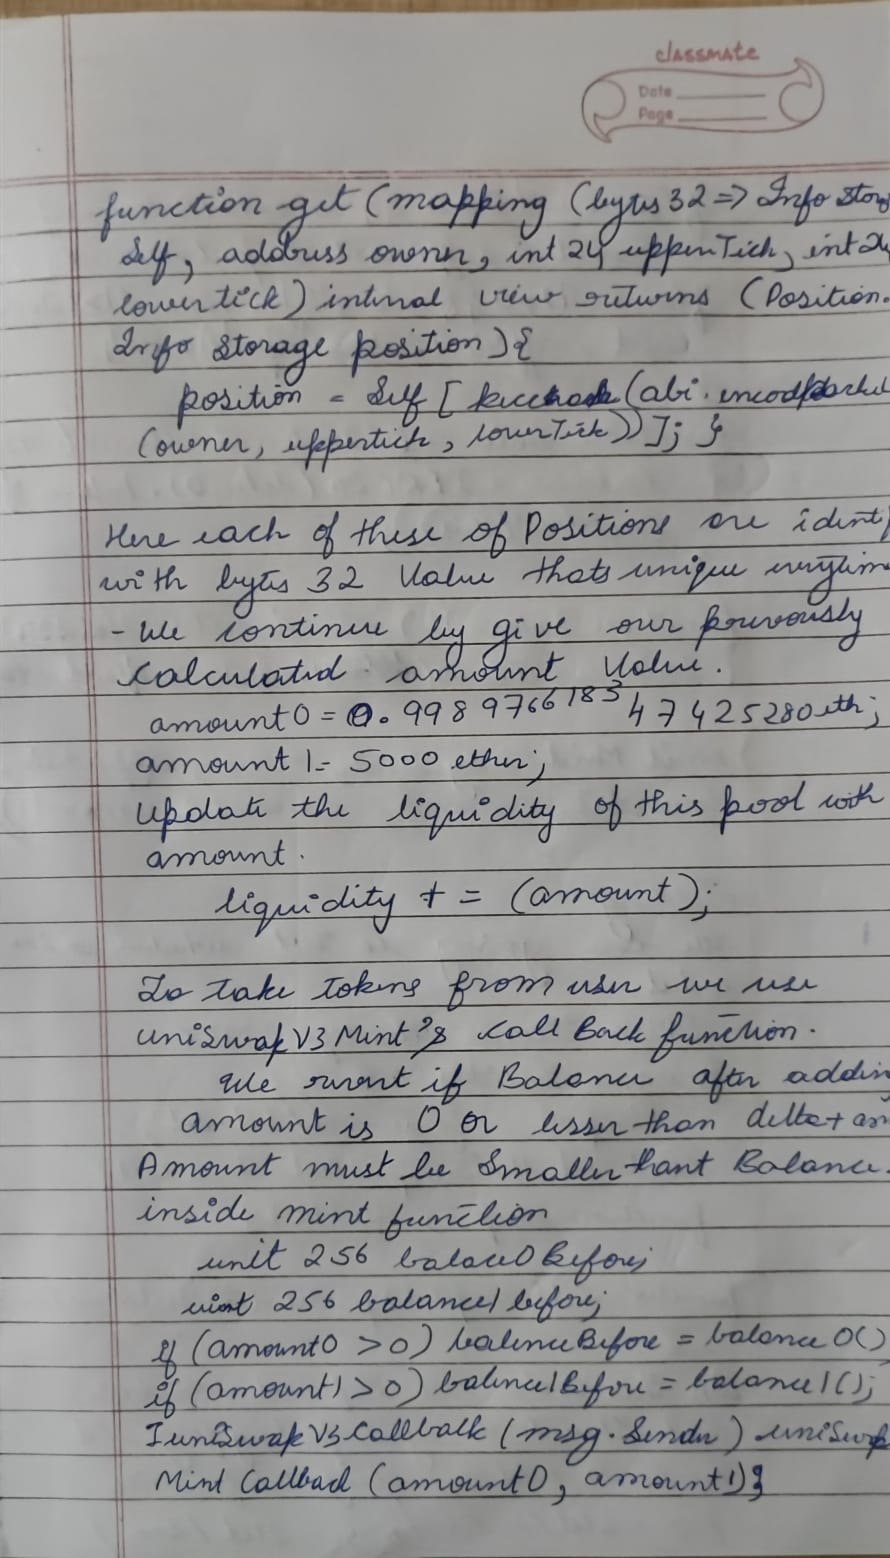 classmate
Date
Page
function get (mapping (bytes 32 => Info Stor
Self, address owner, int 24 upperTick, int 24
lowertick) internal view returns (Position.
Info Storage position) {
position = Self [ (abi.
(owner, uppertick, lowerTick))]; }
Here each of these of Positions are identif
with bytes 32 Value thats unique everytim
- We continue by give our prevously
calculated amount Value.
amount0 = 0.998976618347425280eth;
amount 1 = 5000 ether;
Update the liquidity of this pool with
amount.
liquidity + = (amount);
To take tokens from user we use
uniSwapV3Mint's Call Back function.
We revert if Balance after addin
amount is 0 or lesser than delta + an
Amount must be Smaller thant Balance.
inside mint function
unit 256 balace0 Before;
uint 256 balance1 before;
if (amount0 > 0) balenceBefore = balance0()
if (amount1 > 0) balence1Before = balance1();
IuniSwapV3Callback (msg.Sender) uniSwap
Mint Callbad (amount0, amount1)}